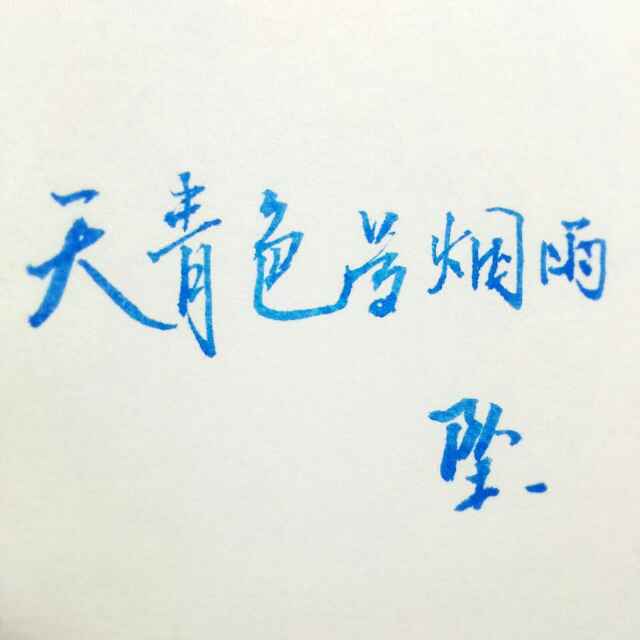 天青色等烟雨
坠.